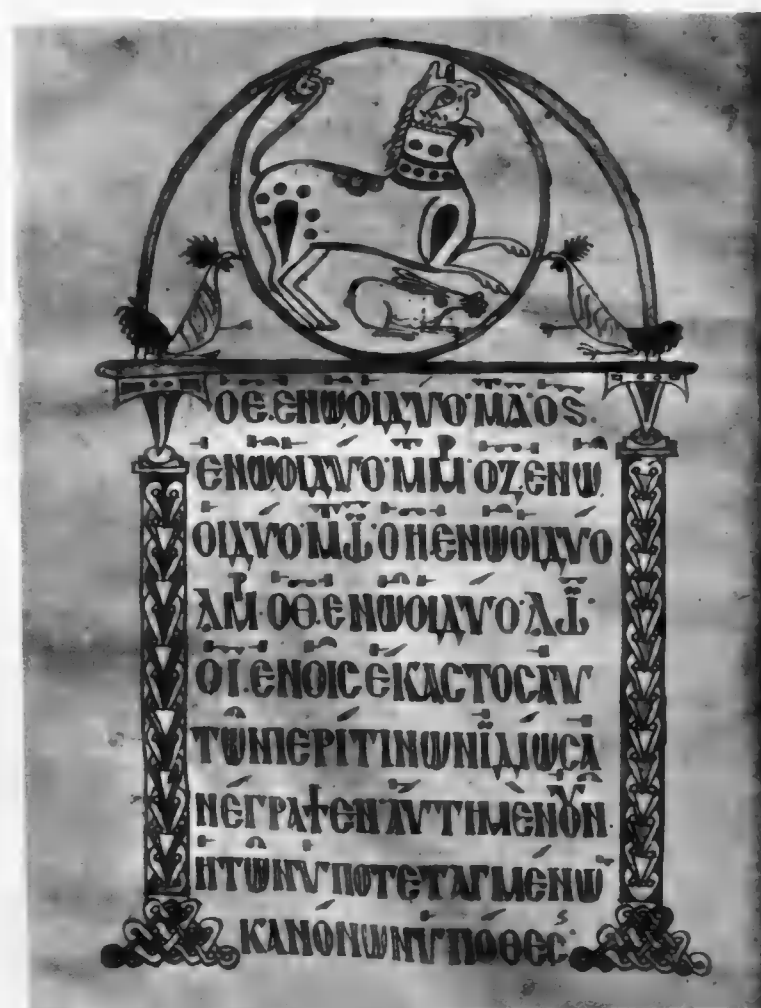 ΟΕ.ΕΝΩΟΙΔΥΟ·ΜΛ·ΟϚ·
ΕΝΩΟΙΔΥΟ·ΜΜρ·ΟΖ.ΕΝΩ
ΟΙΔΥΟ·ΜΙω·ΟΗ·ΕΝΩΟΙΔΥΟ
ΛΜρ·ΟΘ·ΕΝΩΟΙΔΥΟ·ΛΙω·
ΟΙ·ΕΝΟΙϹΕΚΑϹΤΟϹΑΥ
ΤῶΝΠΕΡΙΤΙΝΩΝΪΔΙΩϹΑ
ΝΈΓΡΑΨΕΝ·ΑΥΤΗΜΕΝΟΥΝ·
ΗΤῶΝΥΠΟΤΕΤΑΓΜΕΝΩ
ΚΑΝΌΝΩΝΥΠΟΘΕϹ